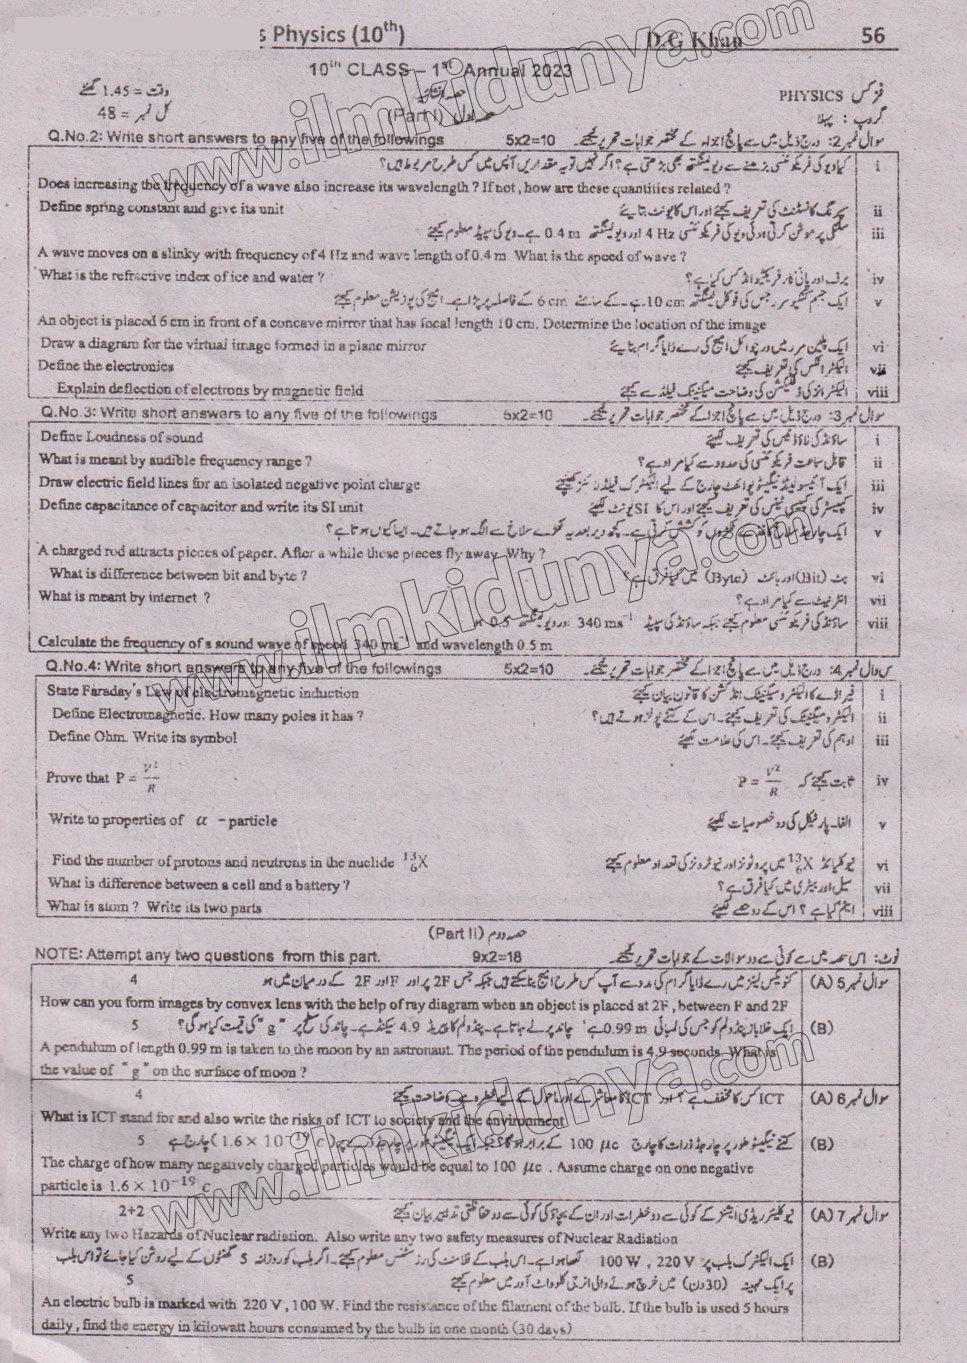 s Physics (10th) D.G Khan 56
10th CLASS – 1st Annual 2023
وقت = 1.45 گھنٹے حصہ انشائیہ PHYSICS فزکس
کل نمبر = 48 (Part I) حصہ اول گروپ : پہلا
Q.No.2: Write short answers to any five of the followings 5x2=10 سوال نمبر 2: درج ذیل میں سے پانچ اجزاء کے مختصر جوابات تحریر کیجئے۔
کیا ویو کی فریکوئنسی بڑھنے سے ویولینگتھ بھی بڑھتی ہے؟ اگر نہیں تو یہ مقداریں آپس میں کس طرح مربوط ہیں؟ i
Does increasing the frequency of a wave also increase its wavelength ? If not , how are these quantities related ?
Define spring constant and give its unit سپرنگ کانسٹنٹ کی تعریف کیجئے اور اس کا یونٹ بتائیے ii
سلنکی پر موشن کرتی ہوئی ویو کی فریکوئنسی 4 Hz اور ویولینگتھ 0.4 m ہے۔ ویو کی سپیڈ معلوم کیجئے iii
A wave moves on a slinky with frequency of 4 Hz and wave length of 0.4 m What is the speed of wave ?
What is the refractive index of ice and water ? برف اور پانی کا رفریکٹیو انڈکس کیا ہے؟ iv
ایک جسم کنکیو مرر جس کی فوکل لینگتھ 10 cm ہے۔ کے سامنے 6 cm کے فاصلہ پر پڑا ہے۔ امیج کی پوزیشن معلوم کیجئے v
An object is placed 6 cm in front of a concave mirror that has focal length 10 cm. Determine the location of the image
Draw a diagram for the virtual image formed in a plane mirror ایک پلین مرر میں ورچوئل امیج کی رے ڈایا گرام بنائیے vi
Define the electronics الیکٹرانکس کی تعریف کیجئے vii
Explain deflection of electrons by magnetic field الیکٹرانز کی ڈفلیکشن کی وضاحت میگنیٹک فیلڈ سے کیجئے viii
Q.No.3: Write short answers to any five of the followings 5x2=10 سوال نمبر 3: درج ذیل میں سے پانچ اجزا کے مختصر جوابات تحریر کیجئے۔
Define Loudness of sound ساؤنڈ کی لاؤڈنیس کی تعریف لکھئے i
What is meant by audible frequency range ? قابل سماعت فریکوئنسی کی حدود سے کیا مراد ہے؟ ii
Draw electric field lines for an isolated negative point charge ایک آئسولیٹڈ نیگیٹو پوائنٹ چارج کے لیے الیکٹرک فیلڈ لائنز کھینچئے iii
Define capacitance of capacitor and write its SI unit کپیسٹر کی کپیسی ٹینس کی تعریف کیجئے اور اس کا SI یونٹ لکھئے iv
ایک چارجڈ سلاخ کاغذ کے ٹکڑوں کو کشش کرتی ہے۔ کچھ دیر بعد یہ ٹکڑے سلاخ سے الگ ہو جاتے ہیں۔ ایسا کیوں ہوتا ہے؟ v
A charged rod attracts pieces of paper. After a while these pieces fly away Why ?
What is difference between bit and byte ? بٹ (Bit) اور بائٹ (Byte) میں کیا فرق ہے؟ vi
What is meant by internet ? انٹرنیٹ سے کیا مراد ہے؟ vii
ساؤنڈ کی فریکوئنسی معلوم کیجئے جبکہ ساؤنڈ کی سپیڈ 340 ms⁻¹ اور ویولینگتھ 0.5 m viii
Calculate the frequency of a sound wave of speed 340 ms⁻¹ and wavelength 0.5 m
Q.No.4: Write short answers to any five of the followings 5x2=10 سوال نمبر 4: درج ذیل میں سے پانچ اجزا کے مختصر جوابات تحریر کیجئے۔
State Faraday's Law of electromagnetic induction فیراڈے کا الیکٹرومیگنیٹک انڈکشن کا قانون بیان کیجئے i
Define Electromagnetic. How many poles it has ? الیکٹرومیگنیٹک کی تعریف کیجئے۔ اس کے کتنے پولز ہوتے ہیں؟ ii
Define Ohm. Write its symbol اوہم کی تعریف کیجئے۔ اس کی علامت لکھئے iii
Prove that P = V²/R ثابت کیجئے کہ P = V²/R iv
Write to properties of α – particle الفا۔ پارٹیکل کی دو خصوصیات لکھئے v
Find the number of protons and neutrons in the nuclide ¹³₆X نیوکلیائڈ ¹³₆X میں پروٹونز اور نیوٹرونز کی تعداد معلوم کیجئے vi
What is difference between a cell and a battery ? سیل اور بیٹری میں کیا فرق ہے؟ vii
What is atom ? Write its two parts ایٹم کیا ہے؟ اس کے دو حصے لکھئے viii
(Part II) حصہ دوم
NOTE: Attempt any two questions from this part. 9x2=18 نوٹ: اس حصہ میں سے کوئی سے دو سوالات کے جوابات تحریر کیجئے۔
4 کنویکس لینز میں رے ڈایا گرام کی مدد سے آپ کس طرح امیج بنا سکتے ہیں جبکہ جسم 2F پر اور F اور 2F کے درمیان میں ہو سوال نمبر 5 (A)
How can you form images by convex lens with the help of ray diagram when an object is placed at 2F , between F and 2F
5 ایک خلاباز پنڈولم کو جس کی لمبائی 0.99 m ہے ' چاند پر لے جاتا ہے۔ پنڈولم کا پیریڈ 4.9 سیکنڈ ہے۔ چاند کی سطح پر "g" کی قیمت کیا ہوگی؟ (B)
A pendulum of length 0.99 m is taken to the moon by an astronaut. The period of the pendulum is 4.9 seconds. What is
the value of " g " on the surface of moon ?
4 ICT کس کا مخفف ہے؟ اور ICT کا معاشرے اور ماحول کے لیے خطرہ ہے۔ وضاحت کیجئے سوال نمبر 6 (A)
What is ICT stand for and also write the risks of ICT to society and the environment
5 کتنے نیگیٹو طور پر چارجڈ ذرات کا چارج 100 μc کے برابر ہوگا؟ جبکہ ایک نیگیٹو طور پر چارجڈ ذرے پر (1.6 × 10⁻¹⁹ c) چارج ہے (B)
The charge of how many negatively charged particles would be equal to 100 μc . Assume charge on one negative
particle is 1.6 × 10⁻¹⁹ c
2+2 نیوکلیئر ریڈی ایشنز کے کوئی سے دو خطرات اور ان کے بچاؤ کی کوئی سے دو حفاظتی تدابیر بیان کیجئے سوال نمبر 7 (A)
Write any two Hazards of Nuclear radiation. Also write any two safety measures of Nuclear Radiation
ایک الیکٹرک بلب پر 100 W , 220 V لکھا ہوا ہے۔ اس بلب کے فلامنٹ کی رزسٹنس معلوم کیجئے۔ اگر بلب کو روزانہ 5 گھنٹوں کے لیے روشن کیا جائے تو اس بلب (B)
5 پر ایک مہینہ (30 دن) میں خرچ ہونے والی انرجی کلو واٹ آور میں معلوم کیجئے
An electric bulb is marked with 220 V , 100 W. Find the resistance of the filament of the bulb. If the bulb is used 5 hours
daily , find the energy in kilowatt hours consumed by the bulb in one month (30 days)
www.ilmkidunya.com
www.ilmkidunya.com
www.ilmkidunya.com